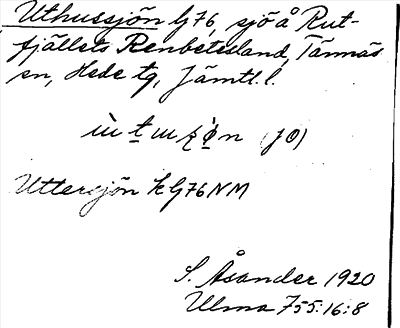 Uthussjön G76, sjö å Rut-
fjällets Renbetesland, Tännäs
sn, Hede tg, Jämtl. l.
(JO)
Uttersjön KG76NM
S. Åsander 1920
Ulma 755:16:8